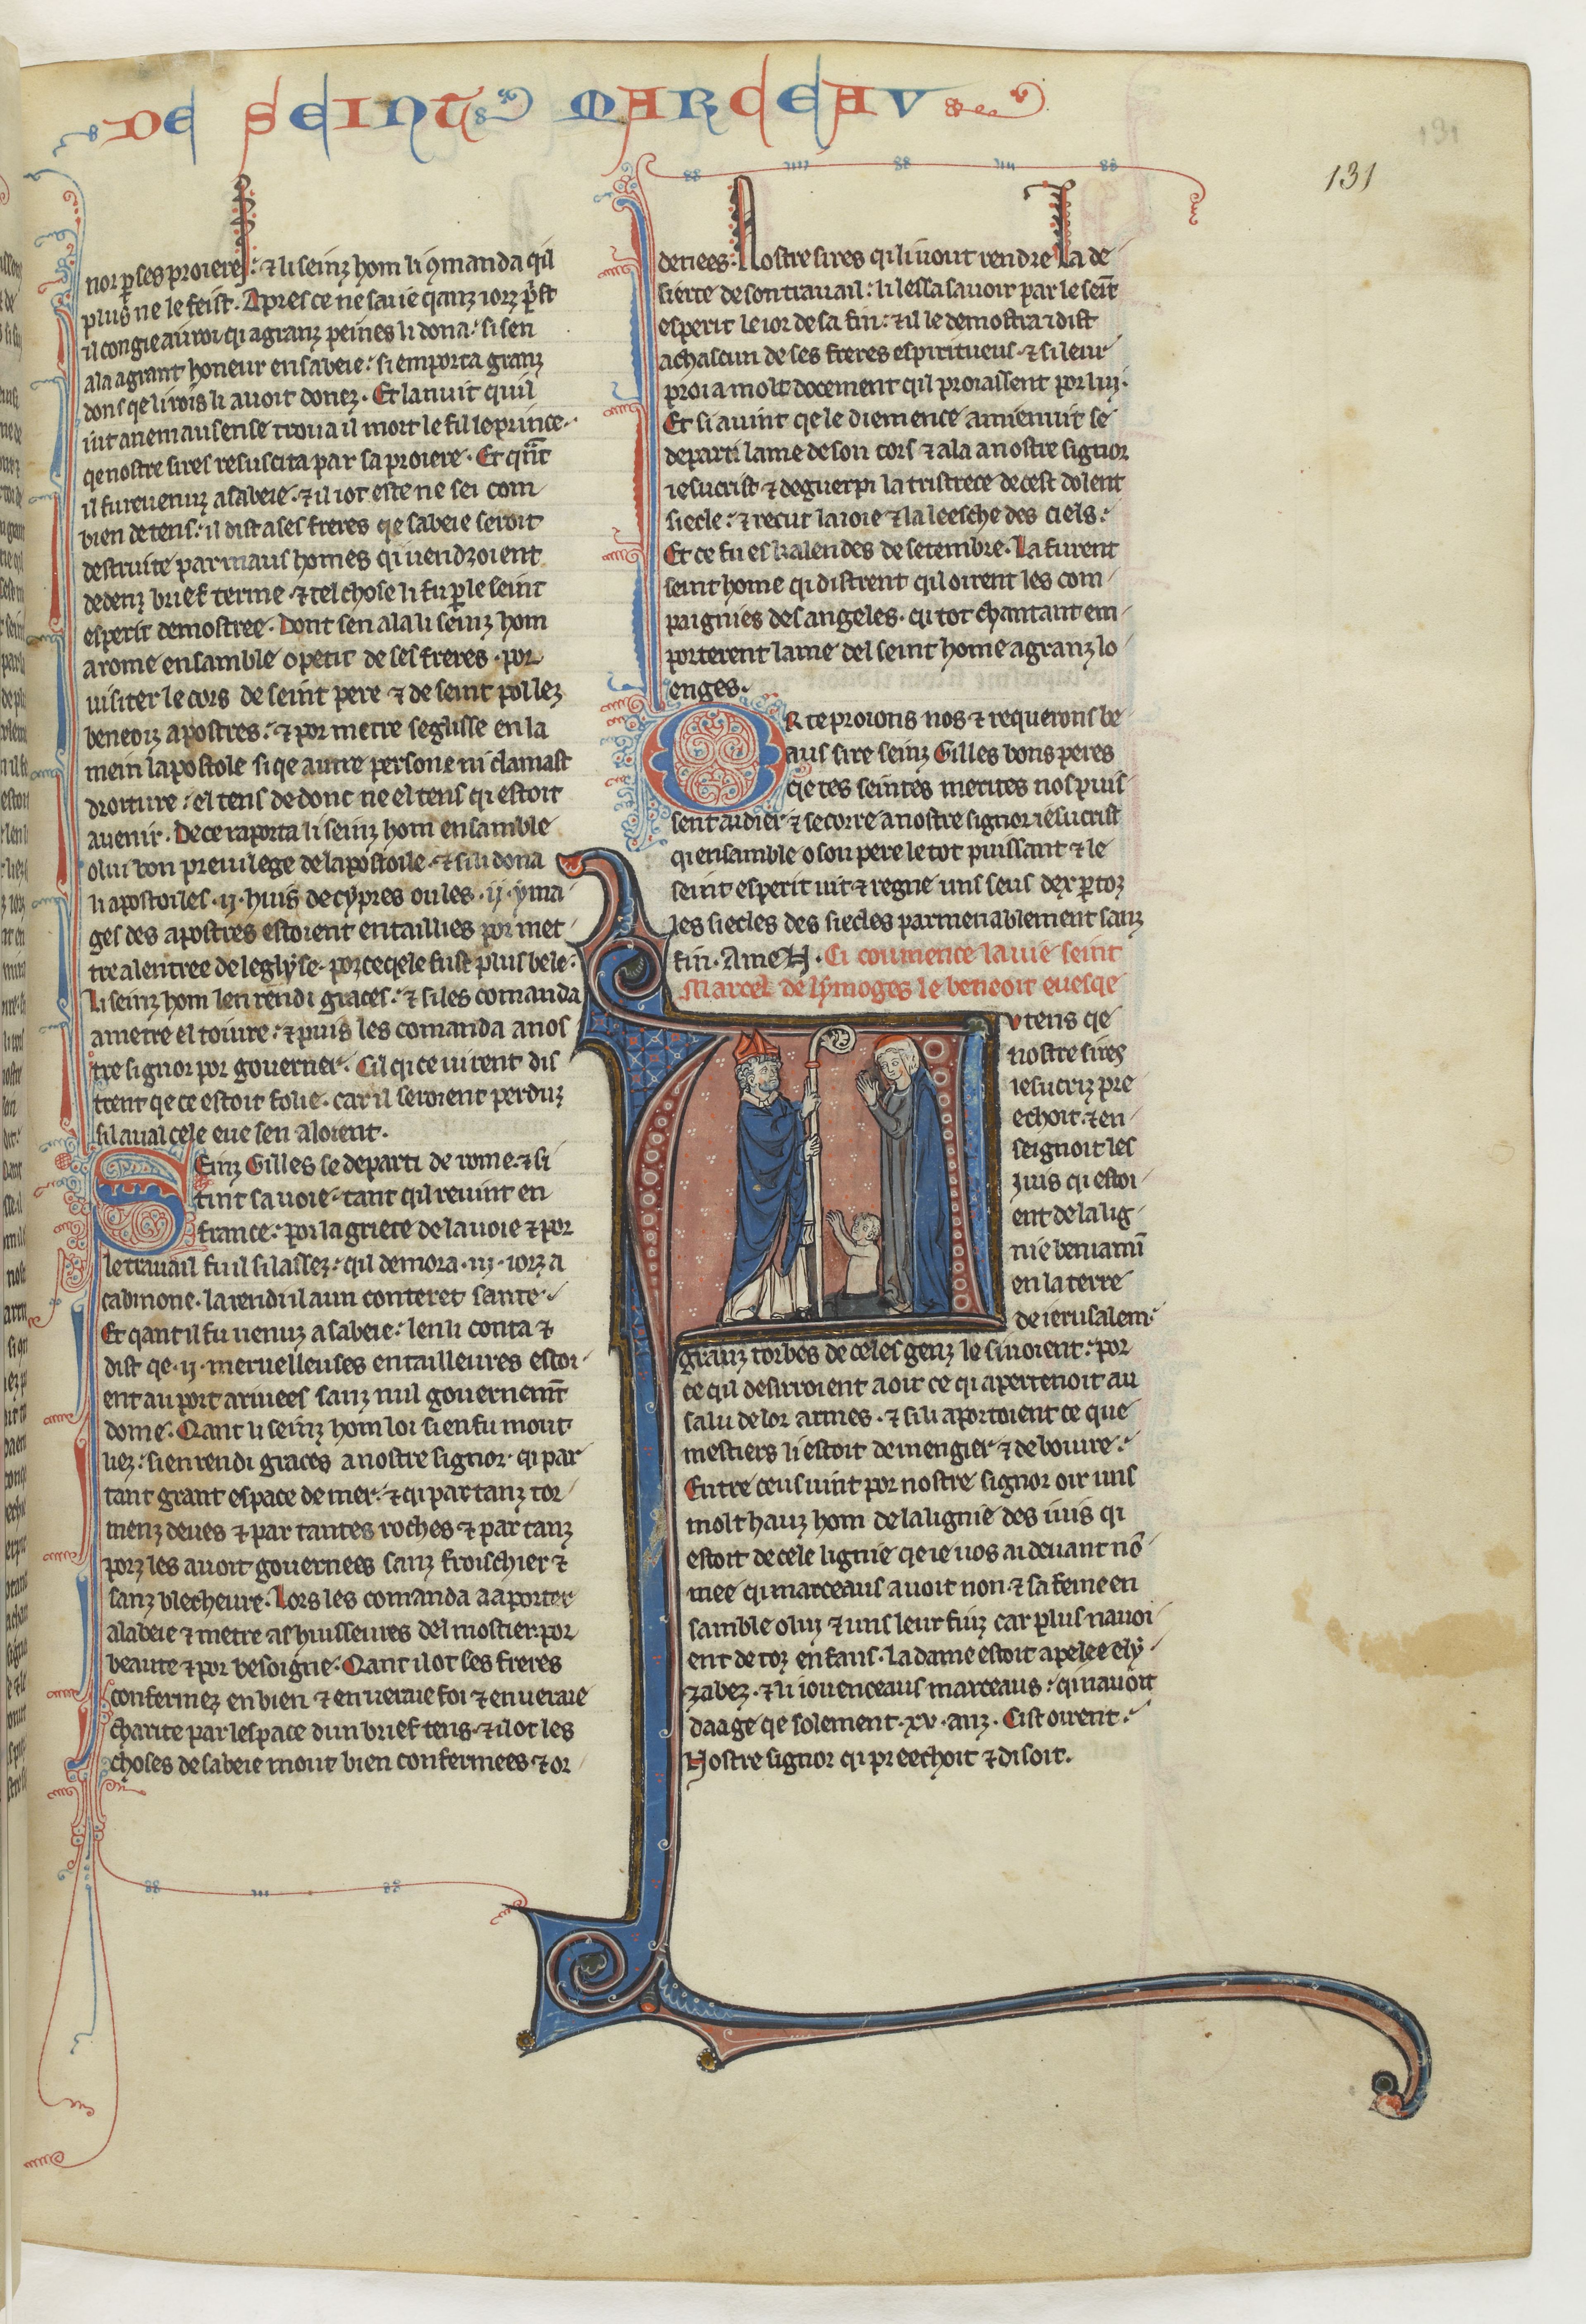 DE SEINT MARCEAV
131
131
nor p ses proieres: ⁊ li seinz hom li ꝯmanda qil
plus ne le feist. Apres ce ne sai ie qanz iorz p̃st
il congie au roi qi a granz peines li dona: si sen
ala a grant honeur en sabeie: si emporta granz
dons qe li rois li auoit donez. Et la nuit quil
iut a nemausense troua il mort le fil le prince.
qe nostre sires resuscita par sa proiere. Et qñt
il fu reuenuz a sabeie. ⁊ il i ot este ne sei com
bien de tens: il dist a ses freres qe sabeie seroit
destruite par maus homes qi uendroient
dedenz brief terme ⁊ tel chose li fu ꝑ le seint
esperit demostree. Dont sen ala li seinz hom
a rome ensamble o petit de ses freres. por
uisiter le cors de seint pere ⁊ de seint pol lez
beneoiz apostres: ⁊ por metre seglisse en la
mein lapostole si qe autre persone ni clamast
droiture: el tens de donc ne el tens qi estoit
auenir. De ce raporta li seinz hom ensamble
o lui bon preuilege de lapostoile. ⁊ si li dona
li apostoiles .ij. huis de cypres ou les .ij. yma
ges des apostres estoient entaillies por met
tre a lentree de leglyse. por ce qe le fust plus bele:
li seinz hom len rendi graces: ⁊ si les comanda
a metre el toiure: ⁊ puis les comanda a nos
tre signor por gouerner. Cil qi ce uirent dis
trent qe ce estoit folie. car il seroient perduz
sil aual cele eue sen aloient.
Seinz Gilles se departi de rome. ⁊ si
tint sa uoie. tant qil reuint en
france: por la griete de la uoie ⁊ por
le trauail fu il si lassez: qil demora .iij. iorz a
cabinone. la rendi il a un conteret sante.
Et qant il fu uenuz a sabeie: len li conta ⁊
dist qe .ij. merueilleuses entailleures estoi
ent au port ariuees sanz nul gouernemt̃
dome. Qant li seinz hom loi si en fu mout
liez: si en rendi graces a nostre signor. qi par
tant grant espace de mer. ⁊ qi par tanz tor
menz deues ⁊ par tantes roches ⁊ par tanz
porz les auoit gouernees sanz froischier ⁊
sanz blecheure. Lors les comanda a aporter
a labeie ⁊ metre as huisseires del mostier. por
beaute ⁊ por besoigne: Qant il ot ses freres
confermez en bien ⁊ en ueraie foi ⁊ en ueraie
charite par lespace dun brief tens. ⁊ il ot les
choses de sabeie mout bien confermees ⁊ or
denees: Nostre sires qi li uout rendre la de
sierte de son trauail: li lessa sauoir par le seint
esperit le ior de sa fin: ⁊ il le demostra ⁊ dist
a chascun de ses freres espiritueus. ⁊ si leur
proia molt docement qil proiassent por lui.
Et si auint qe le diemence a mienuit se
departi lame de son cors ⁊ ala a nostre signor
iesucrist ⁊ deguerpi la tristrece de cest dolent
siecle: ⁊ recut la ioie ⁊ la leesche des ciels:
Et ce fu es kalendes de setembre. La furent
seint home qi distrent qil oirent les com
paignies des angeles. qi tot chantant em
porterent lame del seint home a granz lo
enges.
Or te proions nos ⁊ requerons be
aus sire seinz Gilles bons peres
qe tes seintes merites nos puis
sent aidier ⁊ secorre a nostre signor iesucrist
qi ensamble o son pere le tot puissant ⁊ le
seint esperit uit ⁊ regne uns seus dex ꝑ toz
les siecles des siecles parmenablement sanz
fin. AmeN. Ci coumence la uie seint
Marcel de lymoges le beneoit euesqe
v tens qe
nostre sires
iesucriz pre
echoit. ⁊ en
seignoit les
iuis qi estoi
ent de la lig
nie beniami
en la terre
de ierusalem:
granz torbes de celes genz le siuoient: por
ce qil desirroient a oir ce qi apertenoit au
salu de lor armes. ⁊ si li aportoient ce que
mestiers li estoit de mengier ⁊ de boiure:
Entre ceus uint por nostre signor oir uns
molt hauz hom de la lignie des iuis qi
estoit de cele lignie qe ie uos ai deuant nõ
mee qi marceaus auoit non ⁊ sa feme en
samble o lui ⁊ uns leur fuiz car plus nauoi
ent de toz enfans. la dame estoit apelee ely
zabez. ⁊ li iouenceaus marceaus: qi nauoit
daage qe solement .xv. anz. Cist oirent
Nostre signor qi preechoit ⁊ disoit.